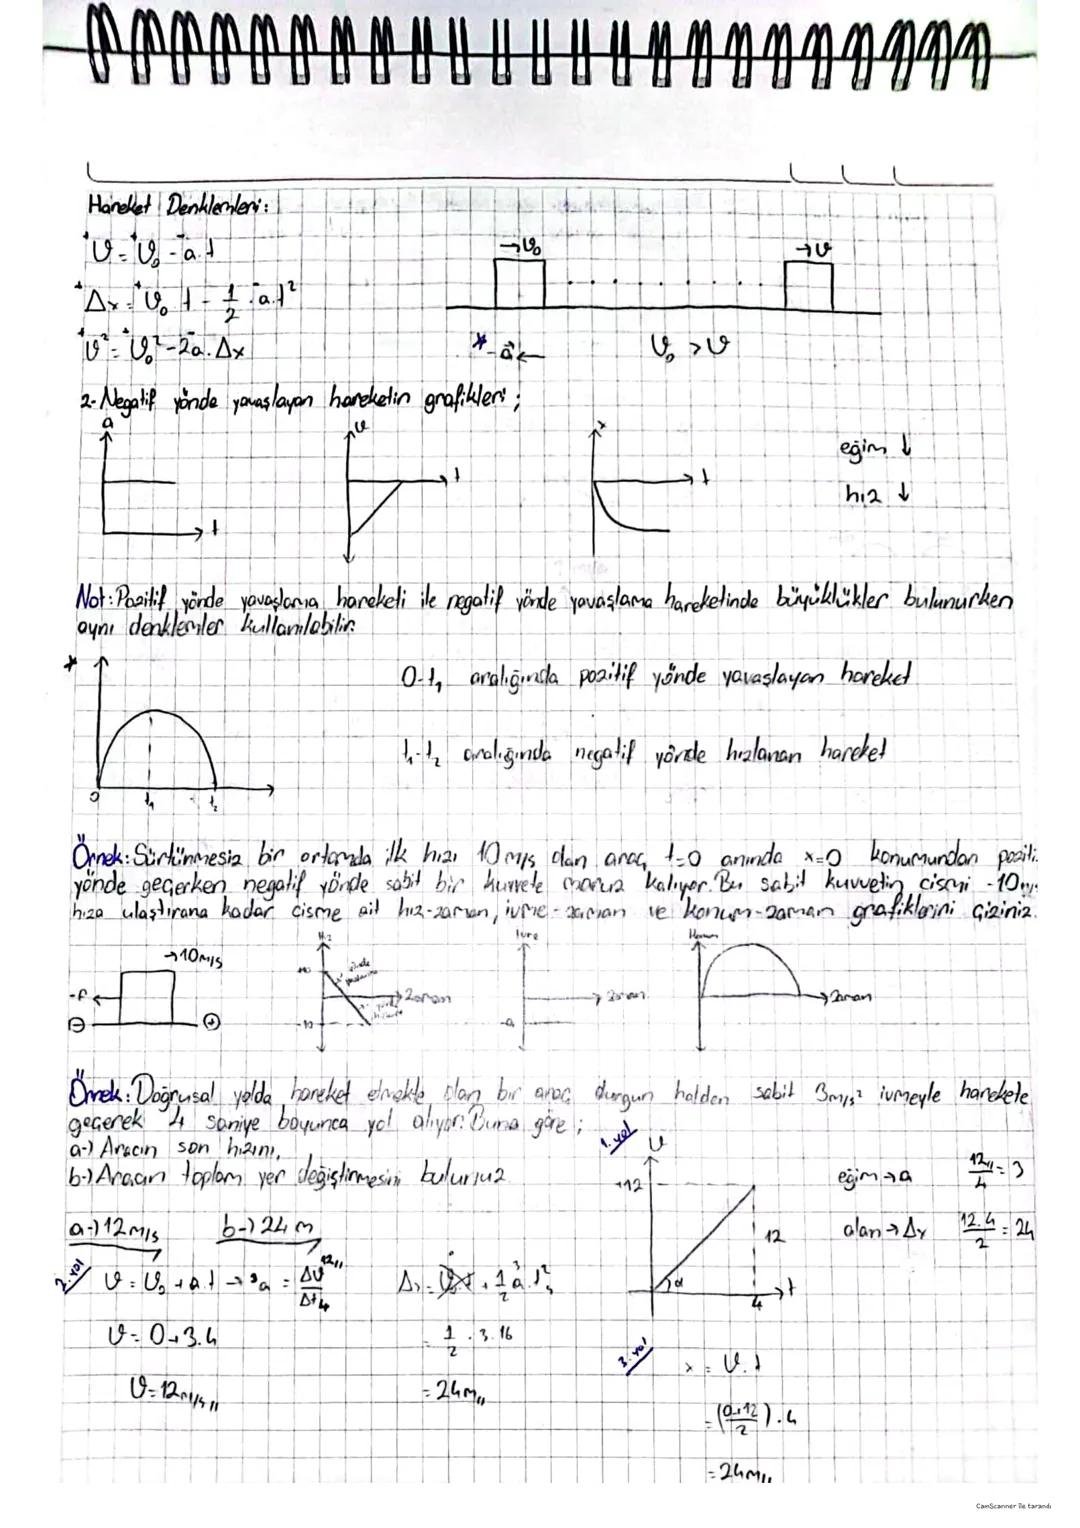 Hareket Denklemleri:
V = V₀ - a.t
→V₀
→V
Δx = V₀.t - 1/2.a.t²
V² = V₀² - 2a.Δx
* -a ←
V₀ > V
2- Negatif yönde yavaşlayan hareketin grafikleri;
a
V
x
t
t
t
eğim ↓
hız ↓
Not: Pozitif yönde yavaşlama hareketi ile negatif yönde yavaşlama hareketinde büyüklükler bulunurken
aynı denklemler kullanılabilir.
*
0-t₁ aralığında pozitif yönde yavaşlayan hareket
t₁-t₂ aralığında negatif yönde hızlanan hareket
0 t₁ t₂
Örnek: Sürtünmesiz bir ortamda ilk hızı 10 m/s olan araç t=0 anında x=0 konumundan poziti
yönde geçerken negatif yönde sabit bir kuvvete maruz kalıyor. Bu sabit kuvvetin cismi -10 m/s
hıza ulaştırana kadar cisme ait hız-zaman, ivme-zaman ve konum-zaman grafiklerini çiziniz.
→10 m/s
-F
⊖ ⊕
Hız
+10
-10
Zaman
İvme
-a
Zaman
Konum
Zaman
Örnek: Doğrusal yolda hareket etmekte olan bir araç durgun halden sabit 3 m/s² ivmeyle harekete
geçerek 4 saniye boyunca yol alıyor. Buna göre;
a-) Aracın son hızını,
b-) Aracın toplam yer değiştirmesini bulunuz
a-) 12 m/s
b-) 24 m
1. yol
V
+12
12
α
4
t
eğim → a
12/4 = 3
alan → Δx
12.4/2 = 24
2. yol
V = V₀ + a.t → a = ΔV/Δt
V = 0+3.4
V = 12 m/s
Δx = V₀.t + 1/2 a.t²
= 1/2 . 3.16
= 24 m
3. yol
x = V.t
= (0+12/2).4
= 24 m
CamScanner ile tarandı